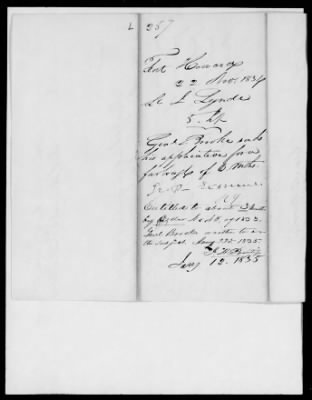 L 257
Fort Howard
22 Nov. 1834
Lt I Lynde
5 Inf
Genl Brooke sends
his application for a
furlough of 6 mths.
Entitled to about 3 months
by Order No. 48 of 1833.
Genl Brooke written to on
the subject Jany 22d 1835.
Jany 12. 1835